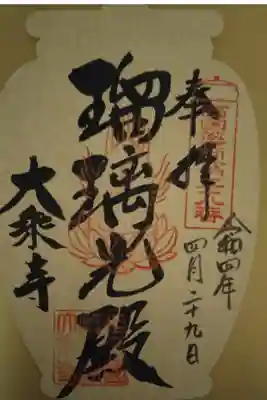 奉拝
令和四年
四月二十九日
瑠璃光殿
大乗寺